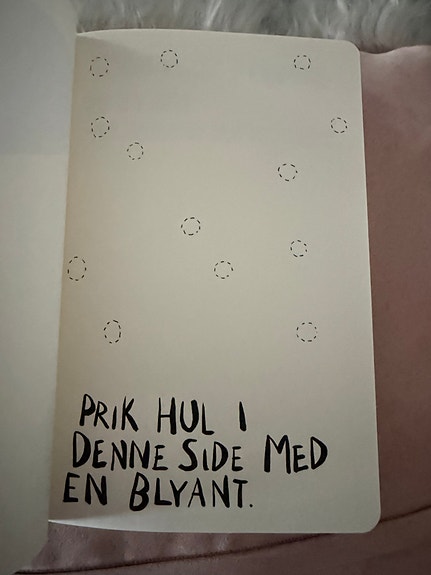 PRIK HUL I
DENNE SIDE MED
EN BLYANT.